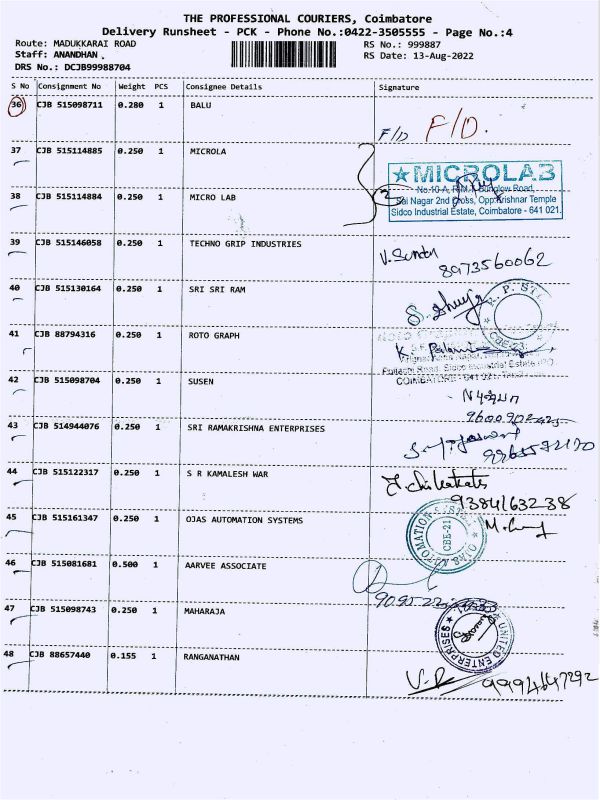 THE PROFESSIONAL COURIERS, Coimbatore
Delivery Runsheet - PCK - Phone No.:0422-3505555 - Page No.:4
Route: MADUKKARAI ROAD RS No.: 999887
Staff: ANANDHAN . RS Date: 13-Aug-2022
DRS No.: DCJB99988704
S No Consignment No Weight PCS Consignee Details Signature
36 CJB 515098711 0.280 1 BALU
F/D F/D.
37 CJB 515114885 0.250 1 MICROLA
★ MICROLAB
No.10-A, Bunglow Road,
38 CJB 515114884 0.250 1 MICRO LAB 2
Sai Nagar 2nd Cross, Opp:Krishnar Temple
Sidco Industrial Estate, Coimbatore - 641 021.
39 CJB 515146058 0.250 1 TECHNO GRIP INDUSTRIES
8973560062
40 CJB 515130164 0.250 1 SRI SRI RAM
CBE-23
41 CJB 88794316 0.250 1 ROTO GRAPH
Sidco Industrial Estate
42 CJB 515098704 0.250 1 SUSEN
COIMBATORE - 641 021
43 CJB 514944076 0.250 1 SRI RAMAKRISHNA ENTERPRISES
44 CJB 515122317 0.250 1 S R KAMALESH WAR
9384163238
45 CJB 515161347 0.250 1 OJAS AUTOMATION SYSTEMS
OJAS AUTOMATION
CBE-21
46 CJB 515081681 0.500 1 AARVEE ASSOCIATE
47 CJB 515098743 0.250 1 MAHARAJA
UNITED ENTERPRISES
48 CJB 88657440 0.155 1 RANGANATHAN
9994647292